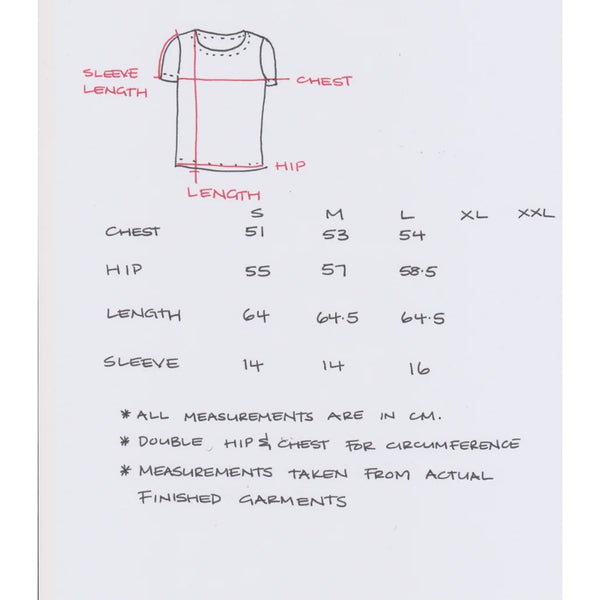 SLEEVE
LENGTH
CHEST
HIP
LENGTH
S M L XL XXL
CHEST 51 53 54
HIP 55 57 58.5
LENGTH 64 64.5 64.5
SLEEVE 14 14 16
* ALL MEASUREMENTS ARE IN CM.
* DOUBLE, HIP & CHEST FOR CIRCUMFERENCE
* MEASUREMENTS TAKEN FROM ACTUAL
FINISHED GARMENTS